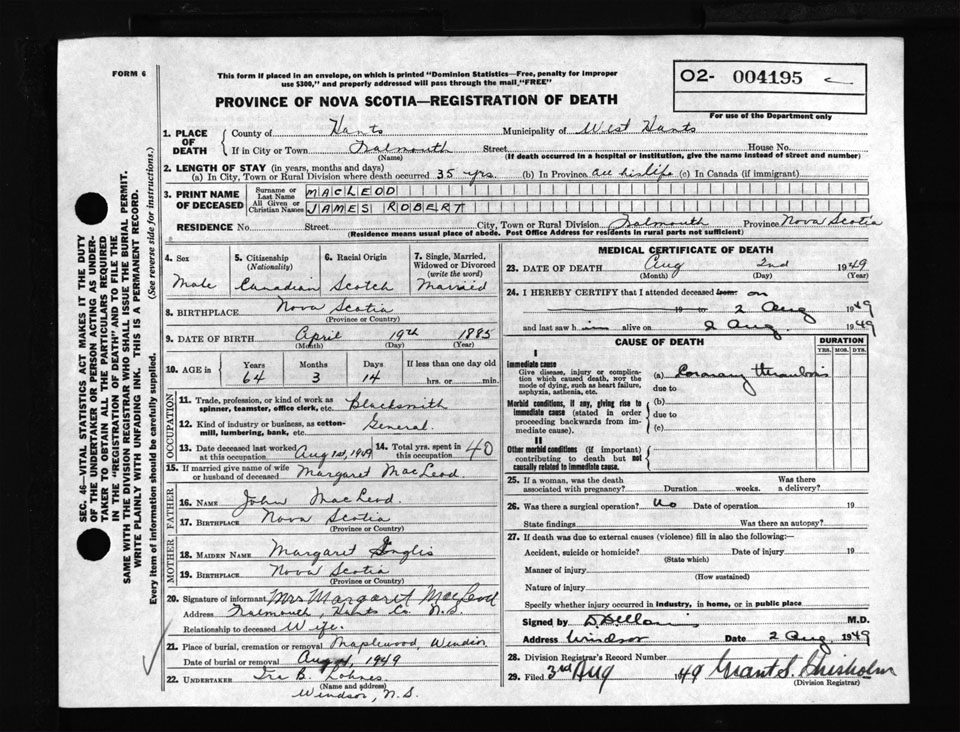 FORM 6
This form if placed in an envelope, on which is printed "Dominion Statistics—Free, penalty for improper
use $300," and properly addressed will pass through the mail "FREE"
O2- 004195
For use of the Department only
PROVINCE OF NOVA SCOTIA—REGISTRATION OF DEATH
SEC. 46—VITAL STATISTICS ACT MAKES IT THE DUTY
OF THE UNDERTAKER OR PERSON ACTING AS UNDER-
TAKER TO OBTAIN ALL THE PARTICULARS REQUIRED
IN THE "REGISTRATION OF DEATH" AND TO FILE THE
SAME WITH THE DIVISION REGISTRAR WHO SHALL ISSUE THE BURIAL PERMIT.
WRITE PLAINLY WITH UNFADING INK. THIS IS A PERMANENT RECORD.
Every item of information should be carefully supplied. (See reverse side for instructions.)
1. PLACE OF DEATH County of Hants Municipality of West Hants
If in City or Town Falmouth Street House No.
(Name) (If death occurred in a hospital or institution, give the name instead of street and number)
2. LENGTH OF STAY (in years, months and days)
(a) In City, Town or Rural Division where death occurred 35 yrs. (b) In Province all his life (c) In Canada (if immigrant)
3. PRINT NAME OF DECEASED Surname or Last Name MACLEOD
All Given or Christian Names JAMES ROBERT
RESIDENCE No. Street City, Town or Rural Division Falmouth Province Nova Scotia
(Residence means usual place of abode. Post Office Address for residents in rural parts not sufficient)
4. Sex 5. Citizenship (Nationality) 6. Racial Origin 7. Single, Married, Widowed or Divorced (write the word)
Male Canadian Scotch Married
8. BIRTHPLACE Nova Scotia
(Province or Country)
9. DATE OF BIRTH April 19th 1885
(Month) (Day) (Year)
10. AGE in Years Months Days If less than one day old
64 3 14 hrs. or min.
OCCUPATION
11. Trade, profession, or kind of work as
spinner, teamster, office clerk, etc. Blacksmith
12. Kind of industry or business, as cotton-
mill, lumbering, bank, etc. General.
13. Date deceased last worked at this occupation Aug 1st, 1949 14. Total yrs. spent in this occupation 40
15. If married give name of wife
or husband of deceased Margaret MacLeod.
FATHER
16. NAME John MacLeod.
17. BIRTHPLACE Nova Scotia
(Province or Country)
MOTHER
18. MAIDEN NAME Margaret Inglis
19. BIRTHPLACE Nova Scotia
(Province or Country)
20. Signature of informant Mrs Margaret MacLeod
Address Falmouth, Hants Co. N.S.
Relationship to deceased Wife.
21. Place of burial, cremation or removal Maplewood Windsor
Date of burial or removal Aug 4, 1949
22. UNDERTAKER Ira B. Lohnes
(Name and address)
Windsor, N.S.
MEDICAL CERTIFICATE OF DEATH
23. DATE OF DEATH Aug 2nd 1949
(Month) (Day) (Year)
24. I HEREBY CERTIFY that I attended deceased from on
19 to 2 Aug 1949
and last saw him alive on 2 Aug. 1949
CAUSE OF DEATH DURATION
YRS. MOS. DYS.
I
Immediate cause
Give disease, injury or complica-
tion which caused death, NOT the
mode of dying, such as heart failure,
asphyxia, asthenia, etc.
(a) Coronary thrombosis
due to
Morbid conditions, if any, giving rise to
immediate cause (stated in order
proceeding backwards from im-
mediate cause).
(b)
due to
(c)
II
Other morbid conditions (if important)
contributing to death but not
causally related to immediate cause.
25. If a woman, was the death
associated with pregnancy? Duration weeks. Was there a delivery?
26. Was there a surgical operation? No Date of operation 19
State findings Was there an autopsy?
27. If death was due to external causes (violence) fill in also the following:—
Accident, suicide or homicide? Date of injury 19
(State which)
Manner of injury
(How sustained)
Nature of injury
Specify whether injury occurred in industry, in home, or in public place
Signed by M.D.
Address Windsor Date 2 Aug. 1949
28. Division Registrar's Record Number
29. Filed 3rd Aug 1949 Grant S. Chisholm
(Division Registrar)